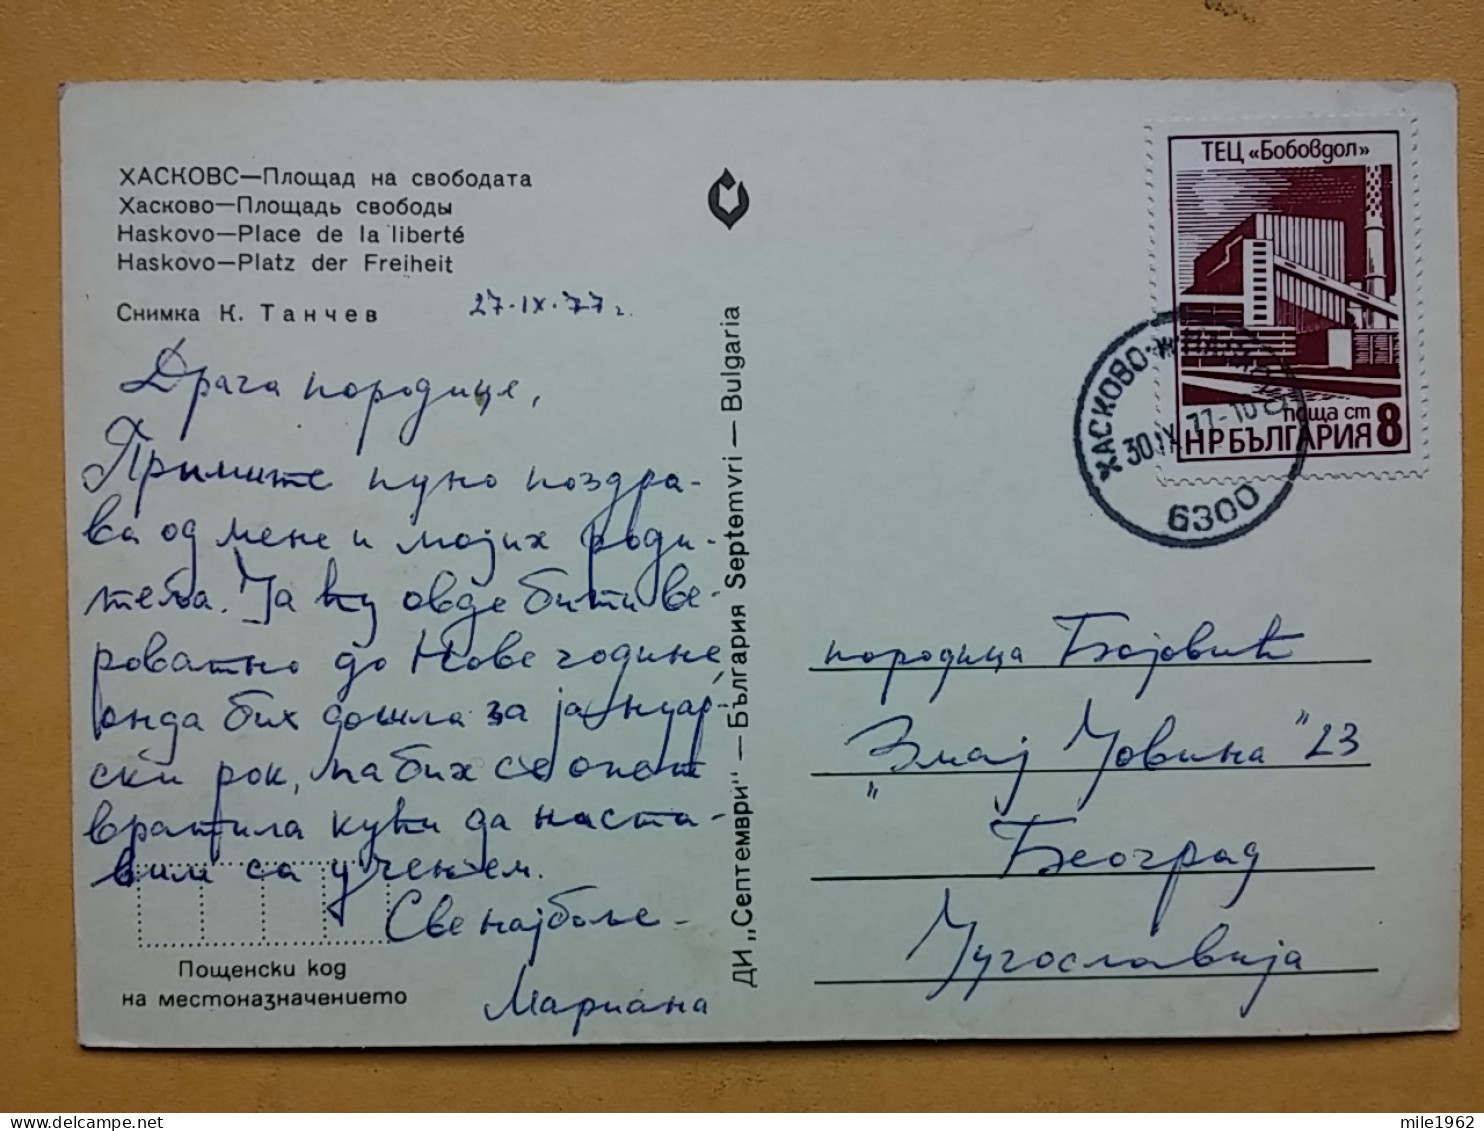 ХАСКОВС—Площад на свободата
Хасково—Площадь свободы
Haskovo—Place de la liberté
Haskovo—Platz der Freiheit
Снимка К. Танчев
27.IX.77 г.
Драга породице,
Примите пуно поздра-
ва од мене и мојих роди-
теља. Ја ћу овде бити ве-
роватно до Нове године
онда бих дошла за јануар-
ски рок, па бих се опет
вратила кући да наста-
вим са учењем.
Све најбоље -
Мариана
Пощенски код
на местоназначението
ДИ „Септември" — България Septemvri — Bulgaria
ТЕЦ «Бобовдол»
поща ст 8
НР БЪЛГАРИЯ
ХАСКОВО
30.IX.77-10
6300
породица Бојовић
„Змај Јовина" 23
Београд
Југославија
mile1962